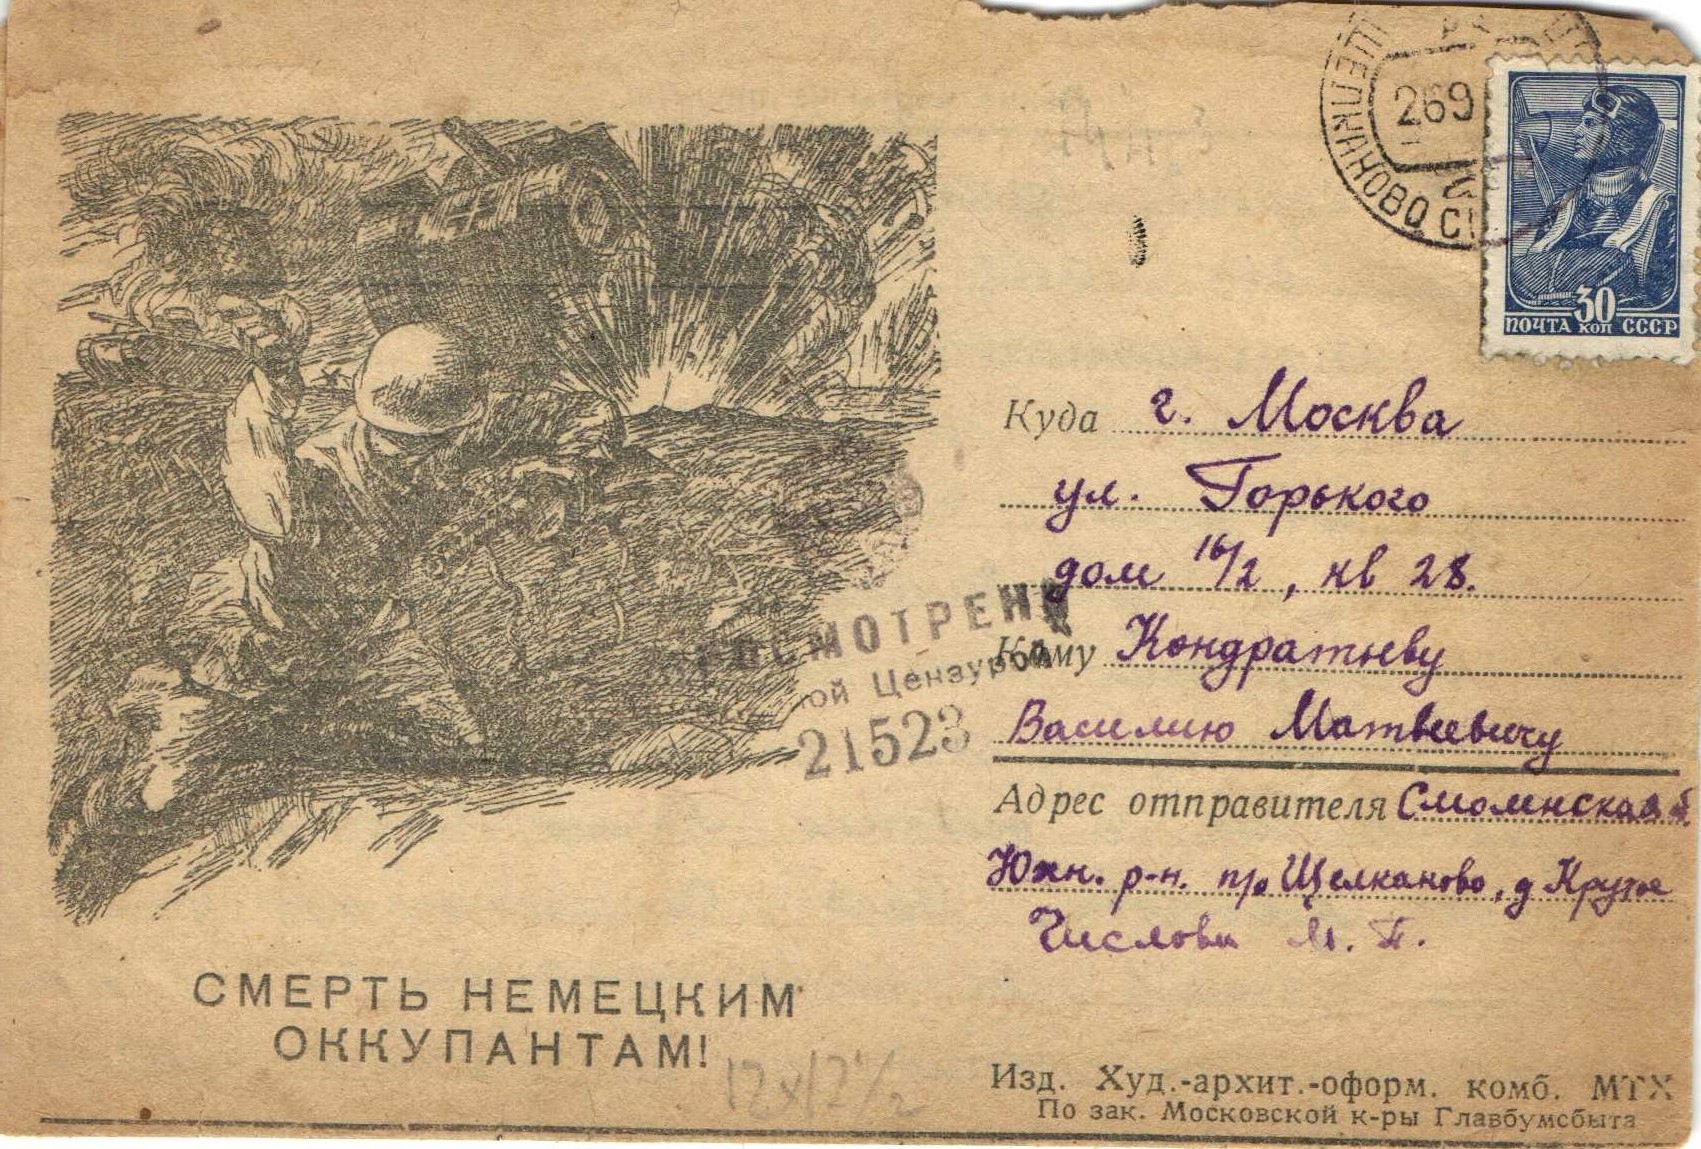 ЩЕЛКАНОВО
269
30
ПОЧТА КОП СССР
Куда г. Москва
ул. Горького
дом 16/2, кв 28.
Кому Кондратьеву
Василию Матвеевичу
ПРОСМОТРЕНО
ой Цензурой
21523
Адрес отправителя Смоленская
Юхн. р-н. п/о Щелканово, д Крутое
Числова М. П.
СМЕРТЬ НЕМЕЦКИМ
ОККУПАНТАМ!
12х12½
Изд. Худ.-архит.-оформ. комб. МТХ
По зак. Московской к-ры Главбумсбыта